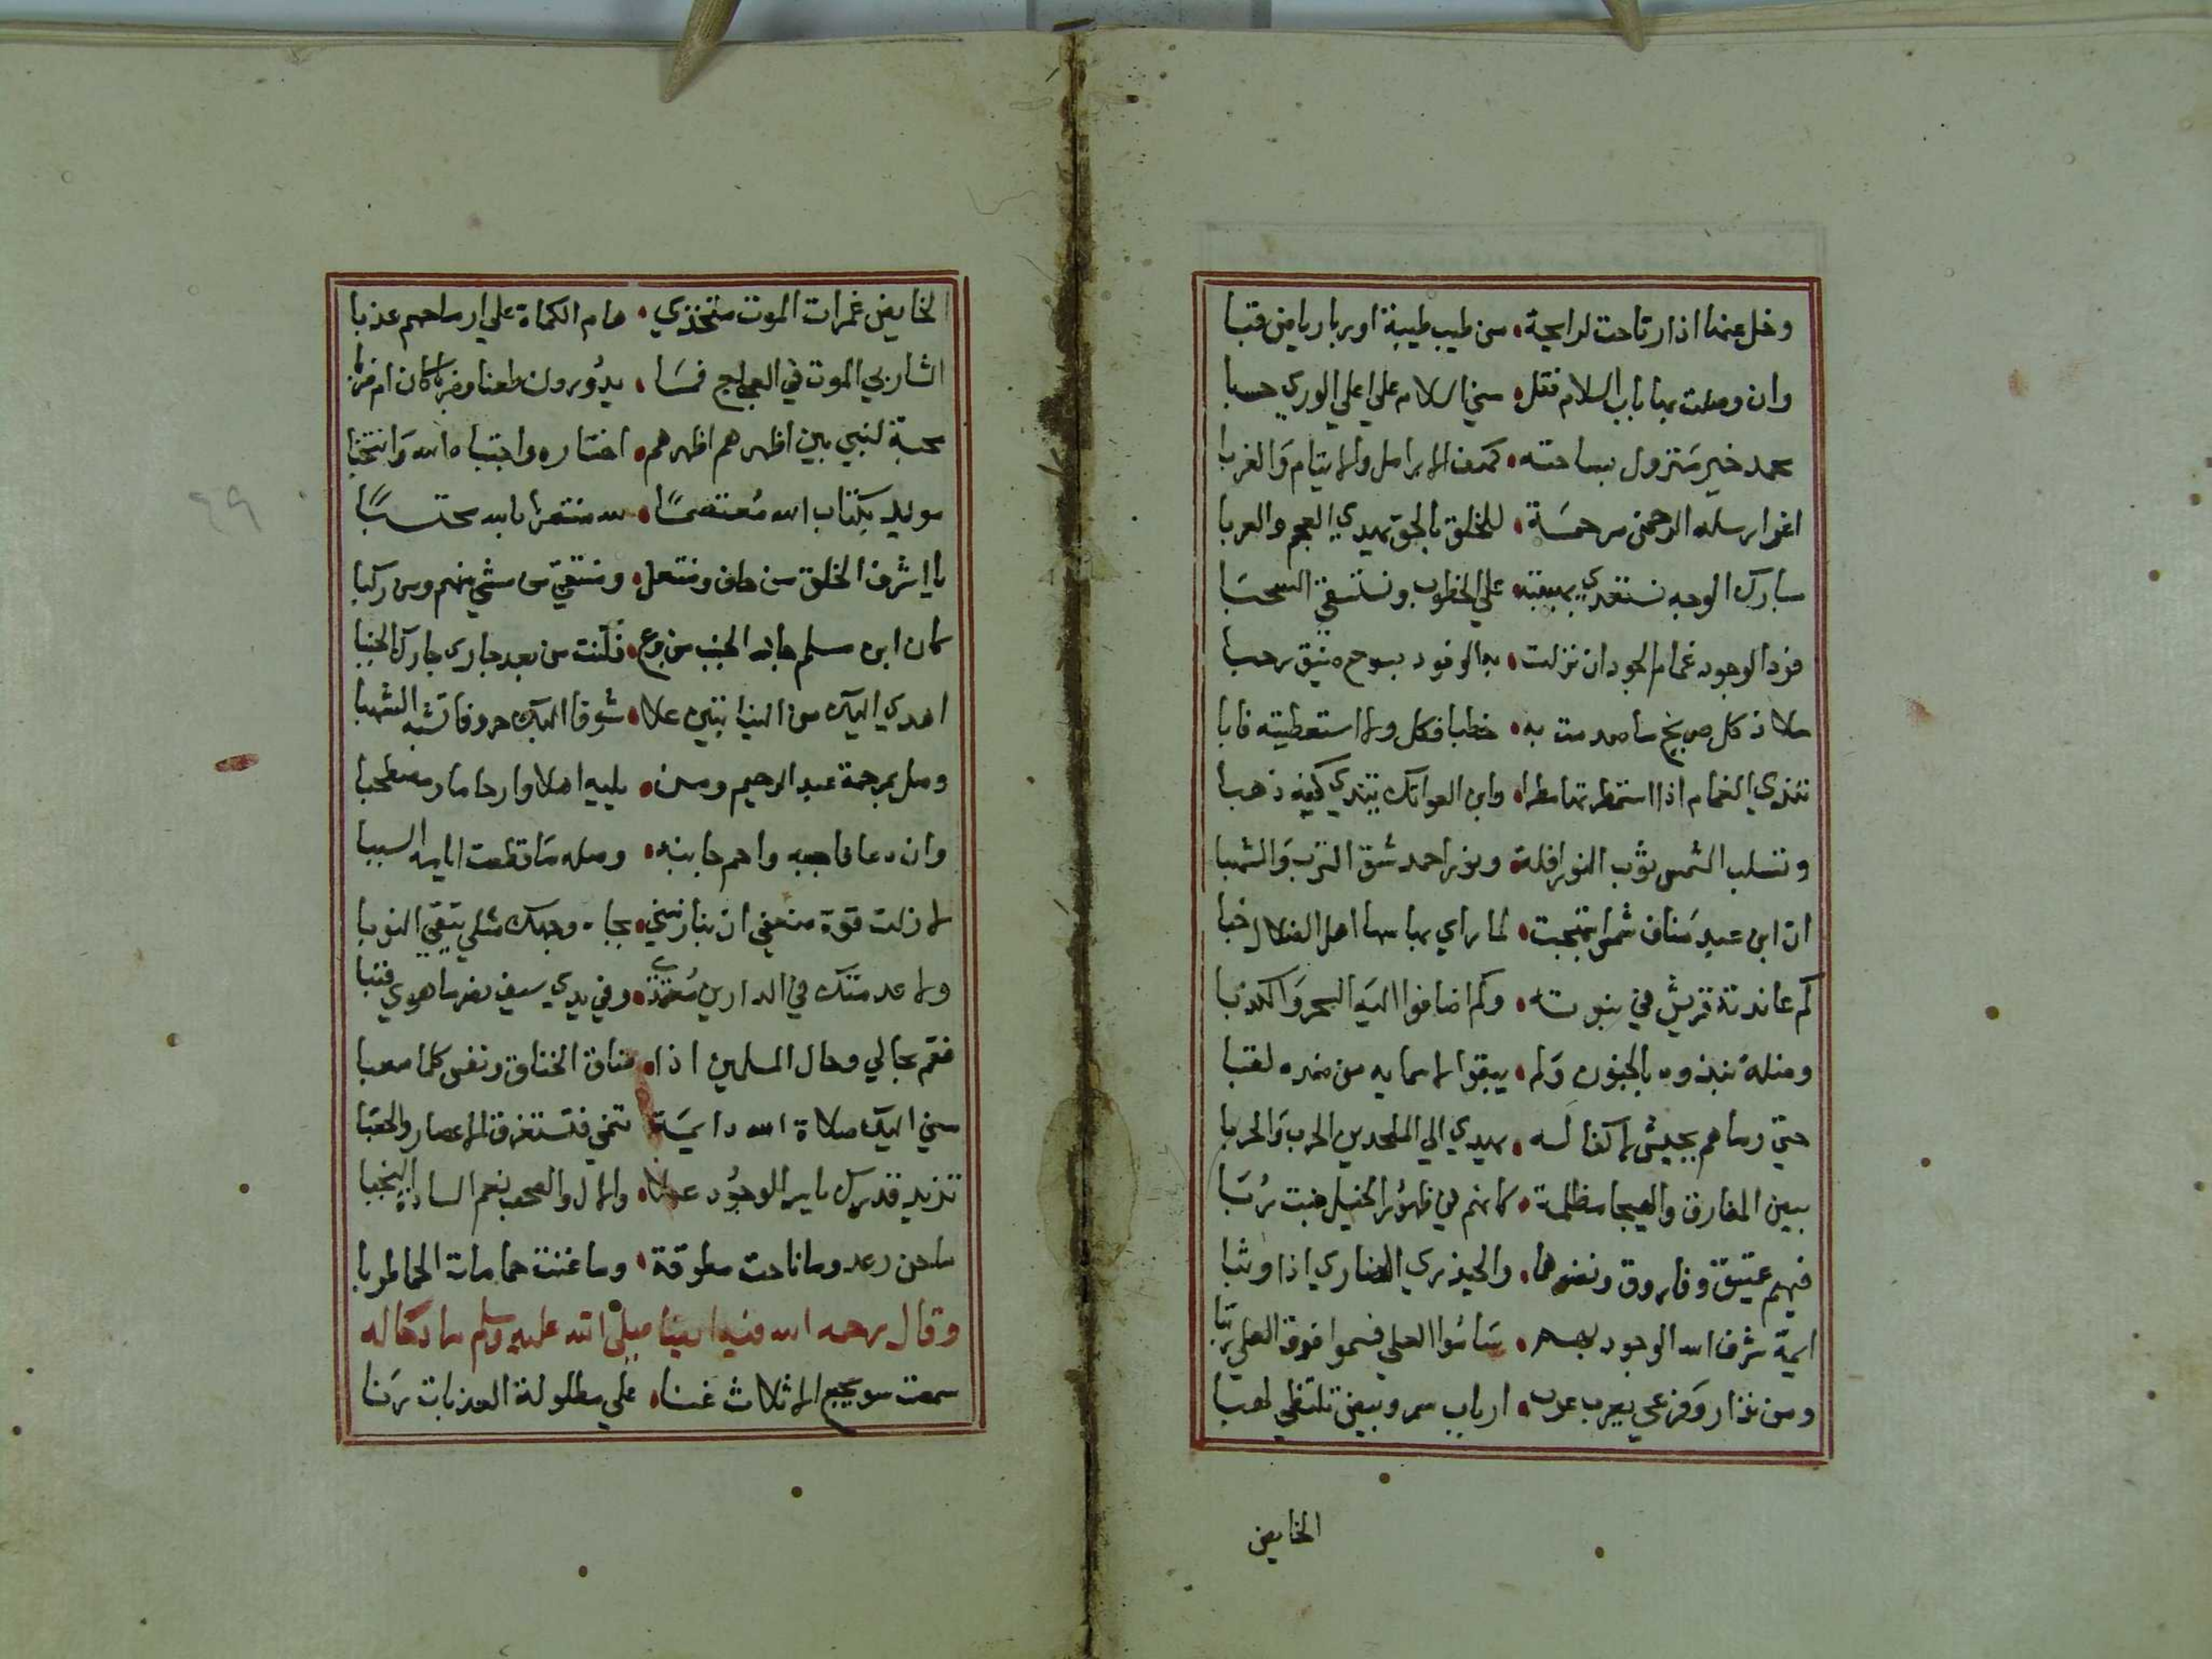 وخل عنها اذا رتاحت لرايحة • من طيب طيبة او ريا رياض قبا
وان وصلت بها باب السلام فقل • مني السلام على اعلى الورى حسبا
محمد خير منزول بساحته • كهف الارامل والايتام والغربا
اغر ارسله الرحمن مرحمة • للخلق بالحق يهدي العجم والعربا
مبارك الوجه نستعدي بهيبته • على الخطوب ونستسقي السحبا
فرد الوجود غمام الجود ان نزلت • به الوفود بسوح ضيق رحبا
ملاذ كل صريخ ما صدمت به • خطبا فكل ولا استعطيته فابا
تندي الغمام اذا استمطرتها مطرا • وابن العواتك تندي كفه ذهبا
وتسلب الشمس ثوب النور افلة • ونور احمد شق الترب والشهبا
ان ابن عبد مناف شمس ابتهجت • لما راى بها اهل الضلال خبا
كم عاندته قريش في نبوته • وكم اضافوا اليه السحر والكذبا
ومثله نبذوه بالجنون ولم • يبقوا لاسمايه من ضده لقبا
حتى رماهم بجيش لا كفا له • يهدي الى الملحدين الحرب والحربا
بيض المفارق والهيجا مظلمة • كانهم في ظهور الخيل نبت ربا
فيهم عتيق وفاروق ونصرهما • والحيدري الضاري اذا وثبا
ايمة شرف الله الوجود بهم • ساموا العلى فسموا فوق العلى رتبا
ومن نزار وفرعي يعرب عرب • ارباب سمر وبيض تلتظي لهبا
الخايض
الخايض غمرات الموت متخذي • هام الكماة على ارماحهم عذبا
الشاربي الموت في العجاج فما • يدرون طعنا وضربا كان ام ضربا
محبة لنبي بين اظهرهم اظهرهم • اختاره واجتباه الله وانتخبا
مويد بكتاب الله معتصما • لله منتصرا بالله محتسبا
يا اشرف الخلق من حاف ومنتعل • ومنتقى من مشى منهم ومن ركبا
كان ابن مسلم جابه الجنب من برع • فكنت من بعد جاري جارك الجنبا
اهدي اليك من النيابتين علا • شوقا اليك حروفا تشبه الشهبا
وصل بمرحمة عبد الرحيم ومن • يليه اهلا وارحاما ومصطحبا
وان دعا فاجبه واحم جانبه • وصله ما قطعت ايامه السببا
لا زلت قوة ضعفي ان بنا زمني • بجاه وجهك مثلي يتقي النوبا
ولا عدمتك في الدارين معتمدي • وفي يدي سيف نصر ما هوى فنبا
فقم بحالي وحال المسلمين اذا • ضاق الخناق ونفس كلما صعبا
مني اليك صلاة الله دايمة • تنمي فتستغرق الاعصار والحقبا
تزيد قدرك يا سر الوجود علا • والال والصحب نعم السادة النجبا
ما حن رعد وما ناحت مطوقة • وما غنت حمامات الحمى طربا
وقال رحمه الله فيه ايضا صلى الله عليه وسلم ما دكاله
سمعت سويجع الاثلاث غنا • على مطلولة العذبات رنا
٤٩